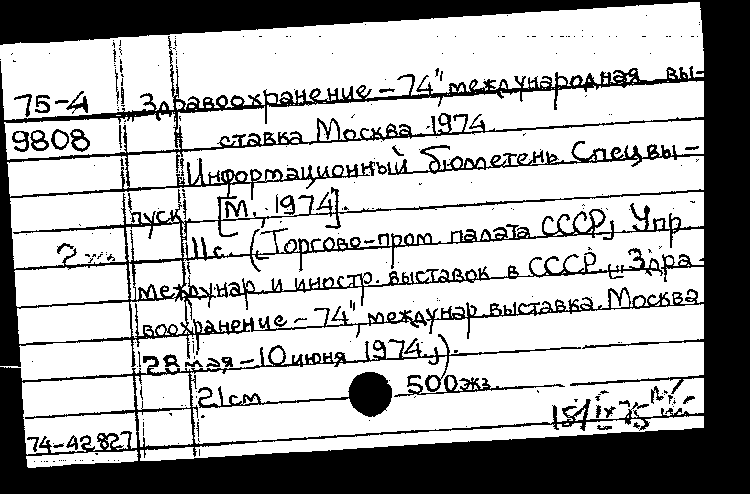 75-А „Здравоохранение – 74", международная вы-
9808 ставка. Москва. 1974
Информационный бюлетень. Спецвы-
пуск. [М., 1974].
11 с. (Торгово-пром. палата СССР. Упр.
междунар. и иностр. выставок в СССР. „Здра-
воохранение – 74", междунар. выставка. Москва
28 мая – 10 июня 1974.)
21 см. 500 экз.
74-42827